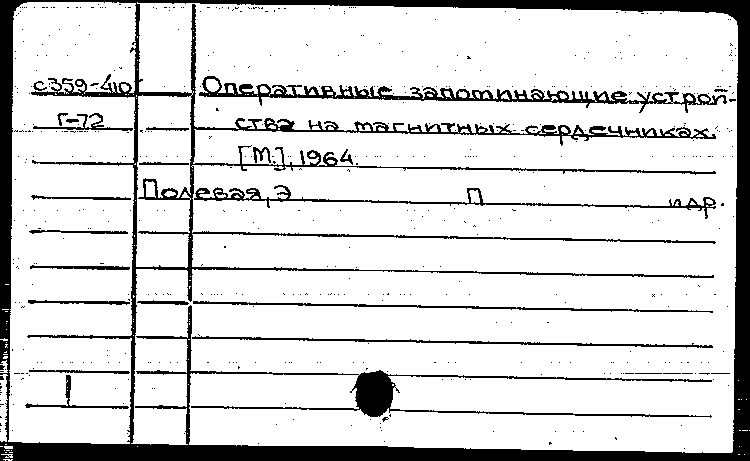 с359-410 Оперативные запоминающие устрой-
Г-72 ства на магнитных сердечниках.
[М.], 1964.
Полевая, Э П и др.
1